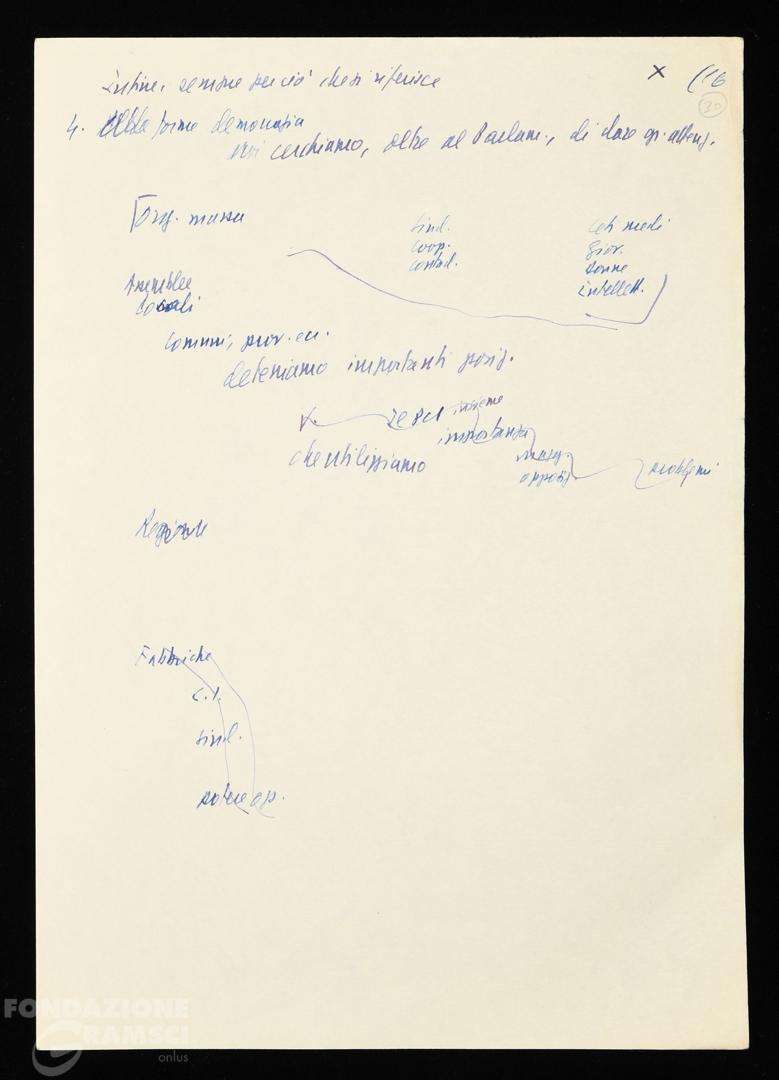 Infine, sempre per ciò che si riferisce
x (16
30
4. alle forme democrazia
noi cerchiamo, oltre al Parlam., di dare gr. attenz.
org. massa
sind.
coop.
contad.
ceti medi
giov.
donne
intellett.
Assemblee
locali
comuni, prov. ecc.
deteniamo importanti posiz.
insieme
importanza
che utilizziamo
magg.
opposiz.
problemi
Regionale
Fabbriche
C.I.
sind.
potere op.
FONDAZIONE
GRAMSCI
onlus